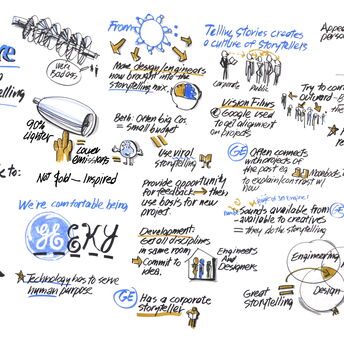 From
Telling Stories creates
a culture of storytellers
Appe
perso
More design/engineers
now brought into the
storytelling mix.
Corporate
Public
elling
90%
Lighter
Lower
emissions
Beth: Often big Cos.
= small budget
Vision Films
Google used
to get alignment
on projects
Try to con
outward-f
the
Use viral
storytelling
GE
Often connects
with projects of
the past eg.
to explain/contrast w/
now
e to:
Not Told - Inspired
Provide opportunity
for feedback → then,
use basis for new
project.
We're comfortable being
GE EKY
Sounds available from
= available to creatives
= they do the storytelling
GE
Development:
Get all disciplines
in same room
→ Commit to
idea.
Engineers
And
Designers
Engineering
Design
A Technology has to serve
human purpose
GE
Has a corporate
storyteller
Great
storytelling